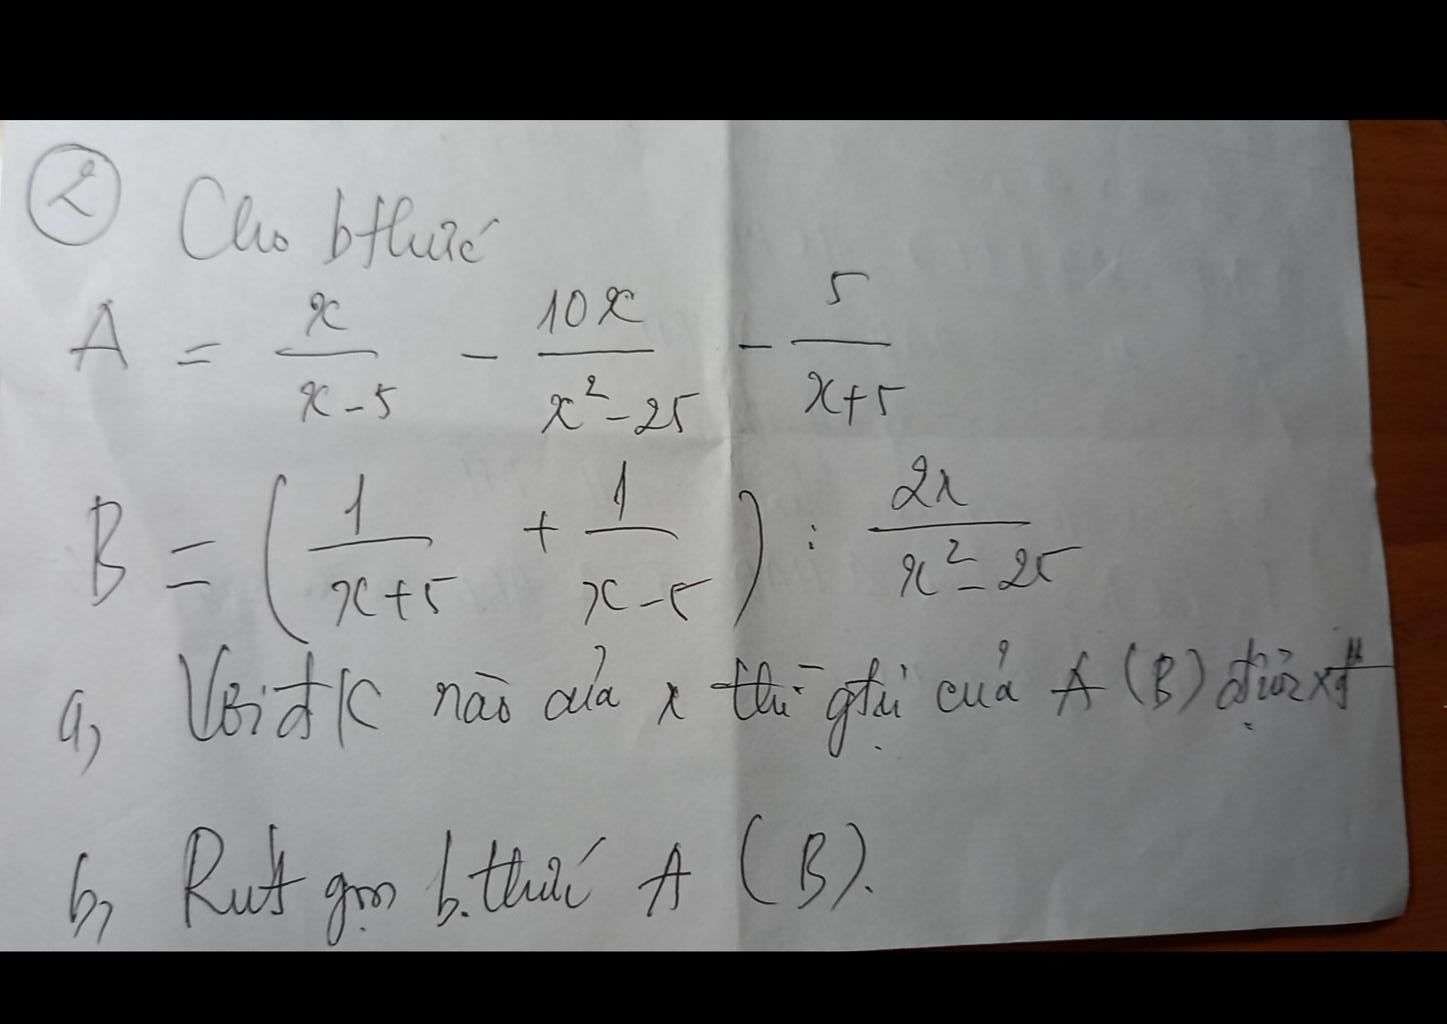 ② Cho bthức
A = x/(x-5) - 10x/(x²-25) - 5/(x+5)
B = (1/(x+5) + 1/(x-5)) : 2x/(x²-25)
a, Với đK nào của x thì gtrị của A (B) được xđ
b, Rút gọn b.thức A (B).